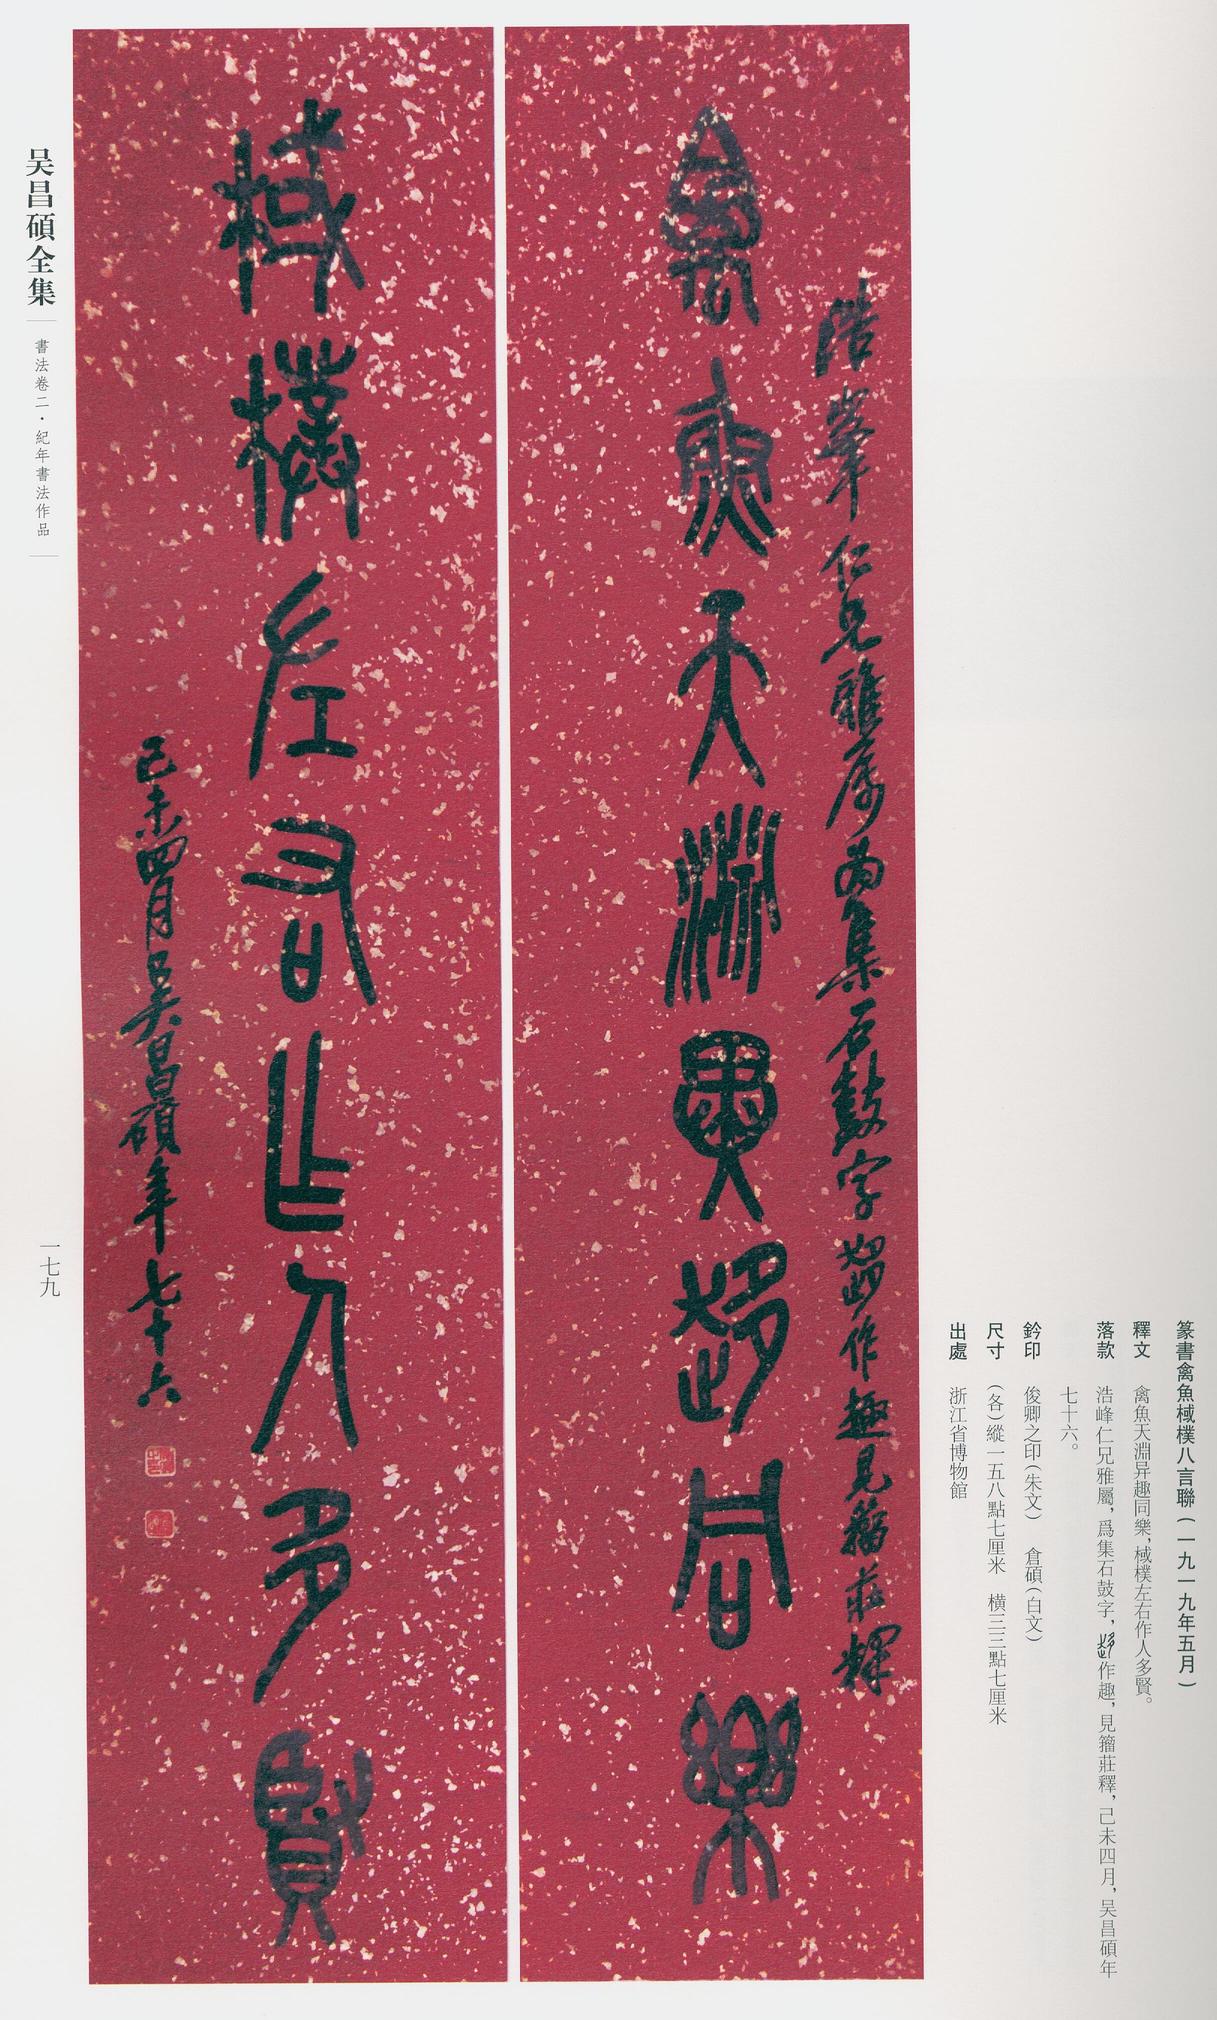 篆書禽魚棫樸八言聯（一九一九年五月）
釋文 禽魚天淵异趣同樂，棫樸左右作人多賢。
落款 浩峰仁兄雅屬，爲集石鼓字，作趣，見籀莊釋，己未四月，吴昌碩年
七十六。
鈐印 俊卿之印（朱文） 倉碩（白文）
尺寸 （各）縱一五八點七厘米 橫三三點七厘米
出處 浙江省博物館
浩峯仁兄雅属為集石鼓字作趣見籀莊釋
禽魚天淵異趣同樂
棫樸左右作人多賢
己未四月吴昌碩年七十六
吴昌碩全集
書法卷二·紀年書法作品
一七九